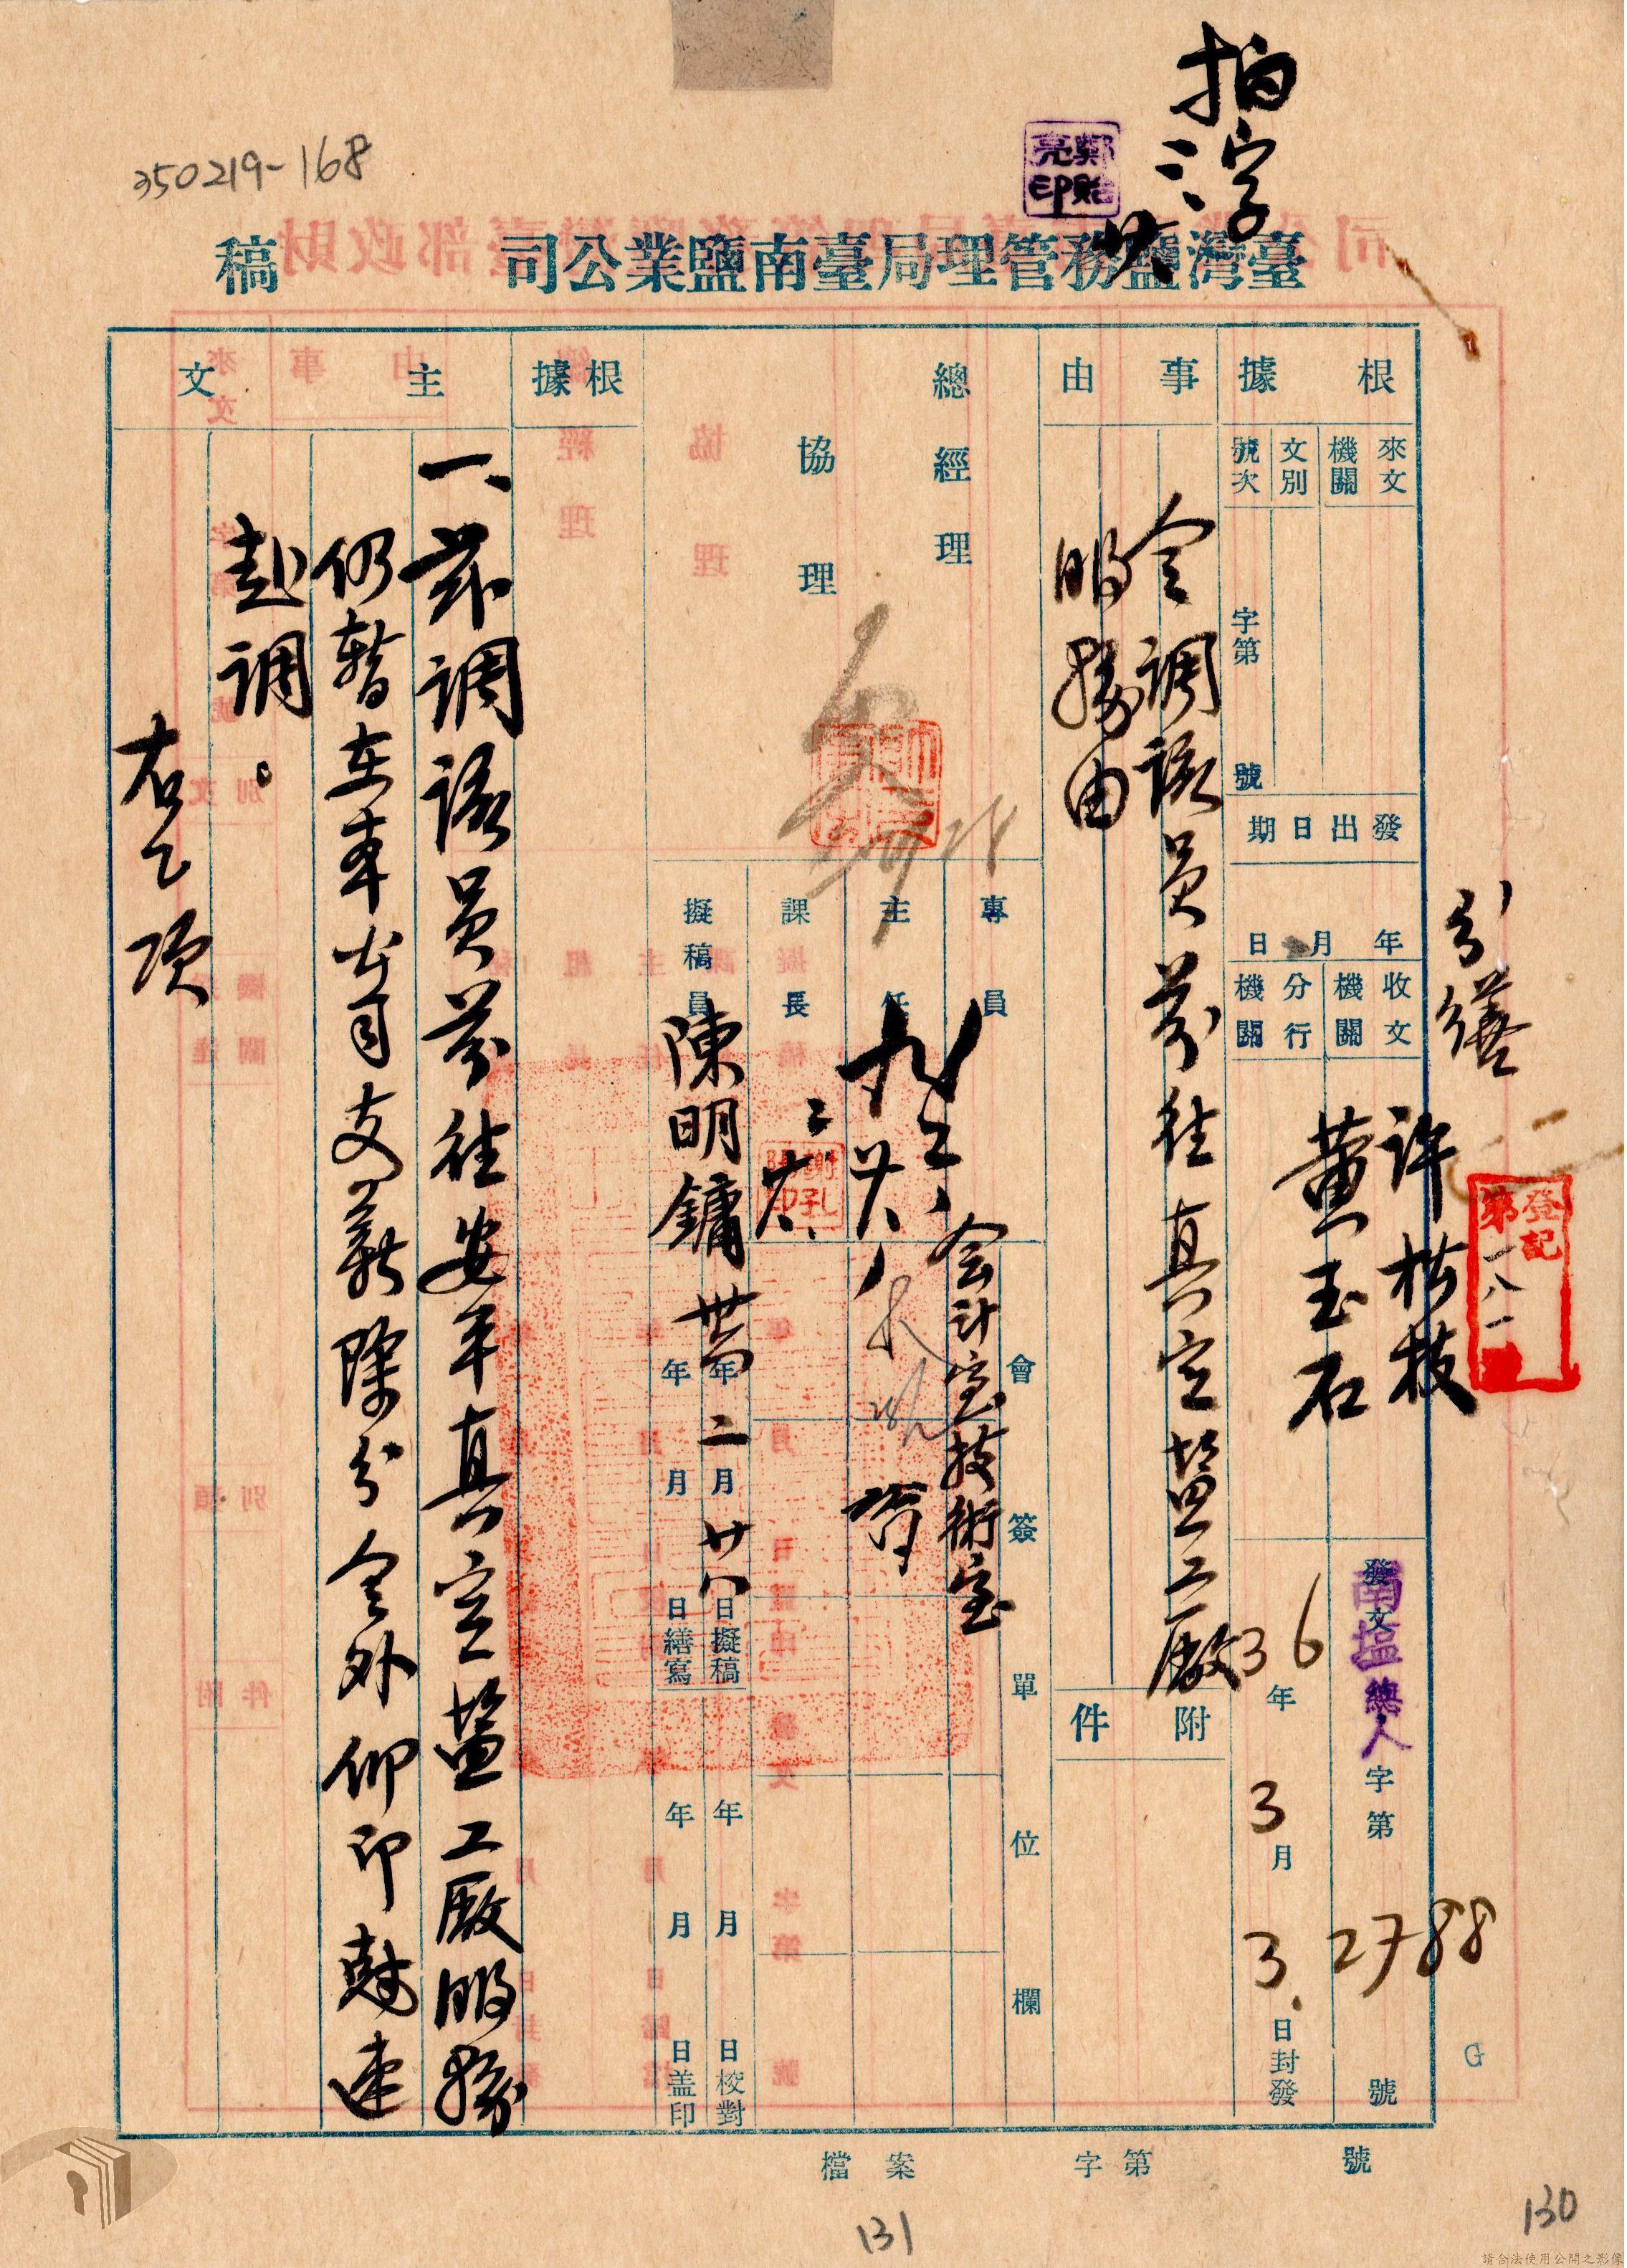 350219-168
拍字
鄭貽亮印
臺灣鹽務管理局臺南鹽業公司 稿
根據
來文機關
文別
號次
字第 號
發出日期
年 月 日
收文機關
分行機關
分繕
許 枝
黃玉石
登記第一八一
發文
南塩總人字第2788號
36年3月3日封發
事由
令調該員等往真空鹽工廠
服務由
附件
總經理
協理
專員
主任
課長
擬稿員
陳明鏞
會簽單位欄
会計室
技術室
卅六年二月廿八日擬稿
年 月 日繕寫
年 月 日校對
年 月 日蓋印
根據
主文
一、茲調該員等往安平真空鹽工廠服務
仍暫在本公司支薪除分令外仰即尅速
赴調。
右乙項
檔案 字第 號
131
130
G
請合法使用公開之影像